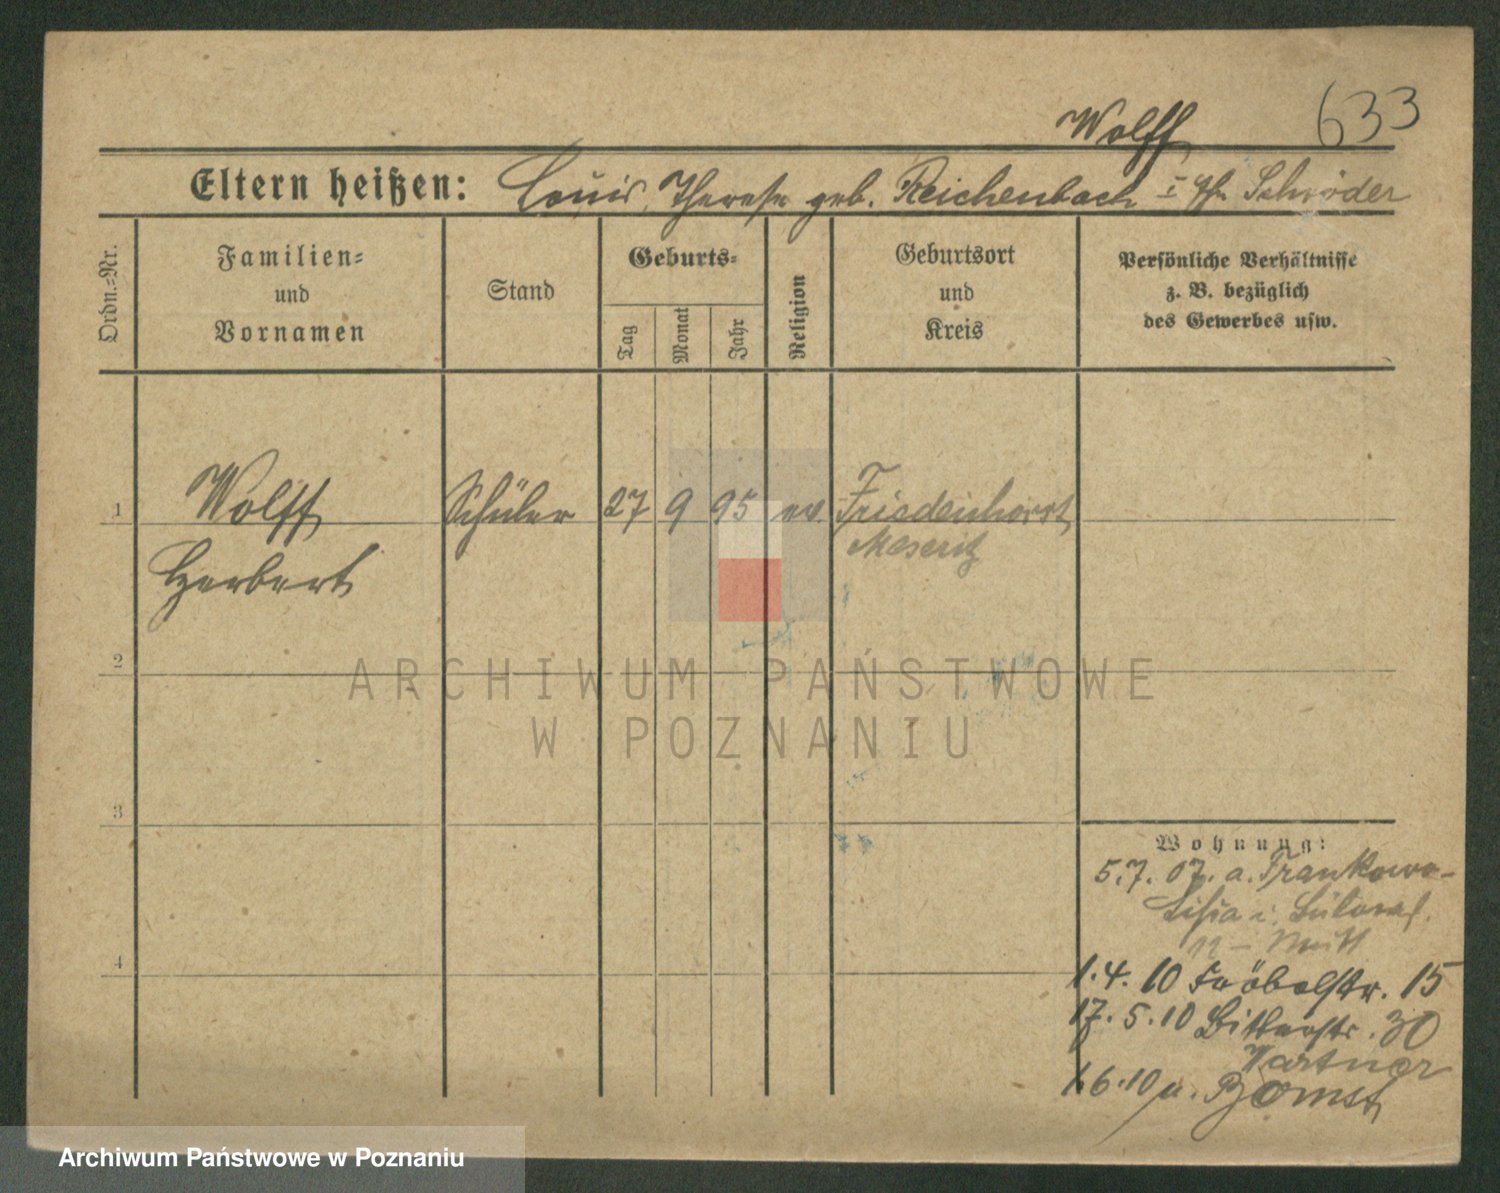 Wolff 633
Eltern heißen: Louis, Therese geb. Reichenbach Schröder
Ordn.=Nr.
Familien=
und
Vornamen
Stand
Geburts=
Tag
Monat
Jahr
Religion
Geburtsort
und
Kreis
Persönliche Verhältnisse
z. B. bezüglich
des Gewerbes usw.
1 Wolff Schüler 27 9 95 ev. Friedenhorst
Meseritz
Herbert
2
ARCHIWUM PAŃSTWOWE
W POZNANIU
3
Wohnung:
5.7.07. a. Frankowo-
4
1.4.10 Fröbelstr. 15
17.5.10 Bitterstr. 30
1.6.10 n. Bomst
Archiwum Państwowe w Poznaniu